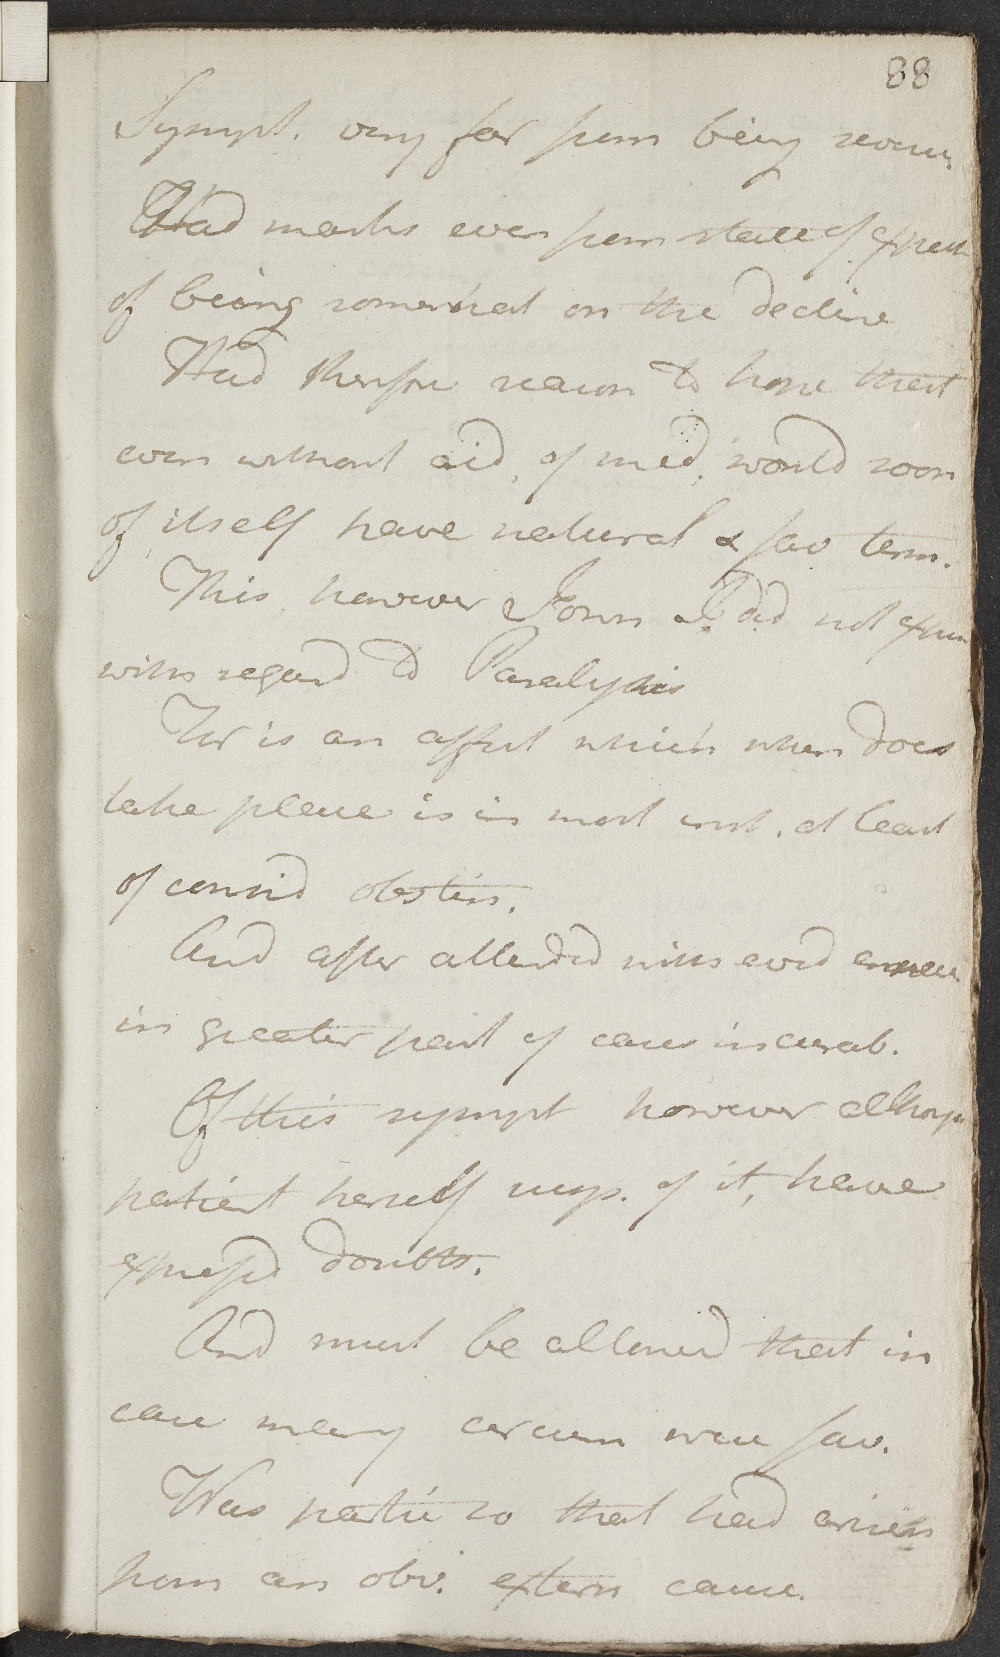 88
Sympt. very far from being severe
Had marks even from state of expect
of being somewhat on the decline
Had therefore reason to hope that
even without aid of med. would soon
of itself have natural & fav term.
This however I own I did not expect
with regard to Paralysis
This is an affect which when does
take place is in most inst. at least
of consid obstin.
And after attended with evid
in greater part of cases incurab.
Of this sympt however altho
patient herself susp. of it, have
expressed doubts.
And must be allowed that in
case many circum were fav.
Was partic so that had arisen
from an obv. extern cause.